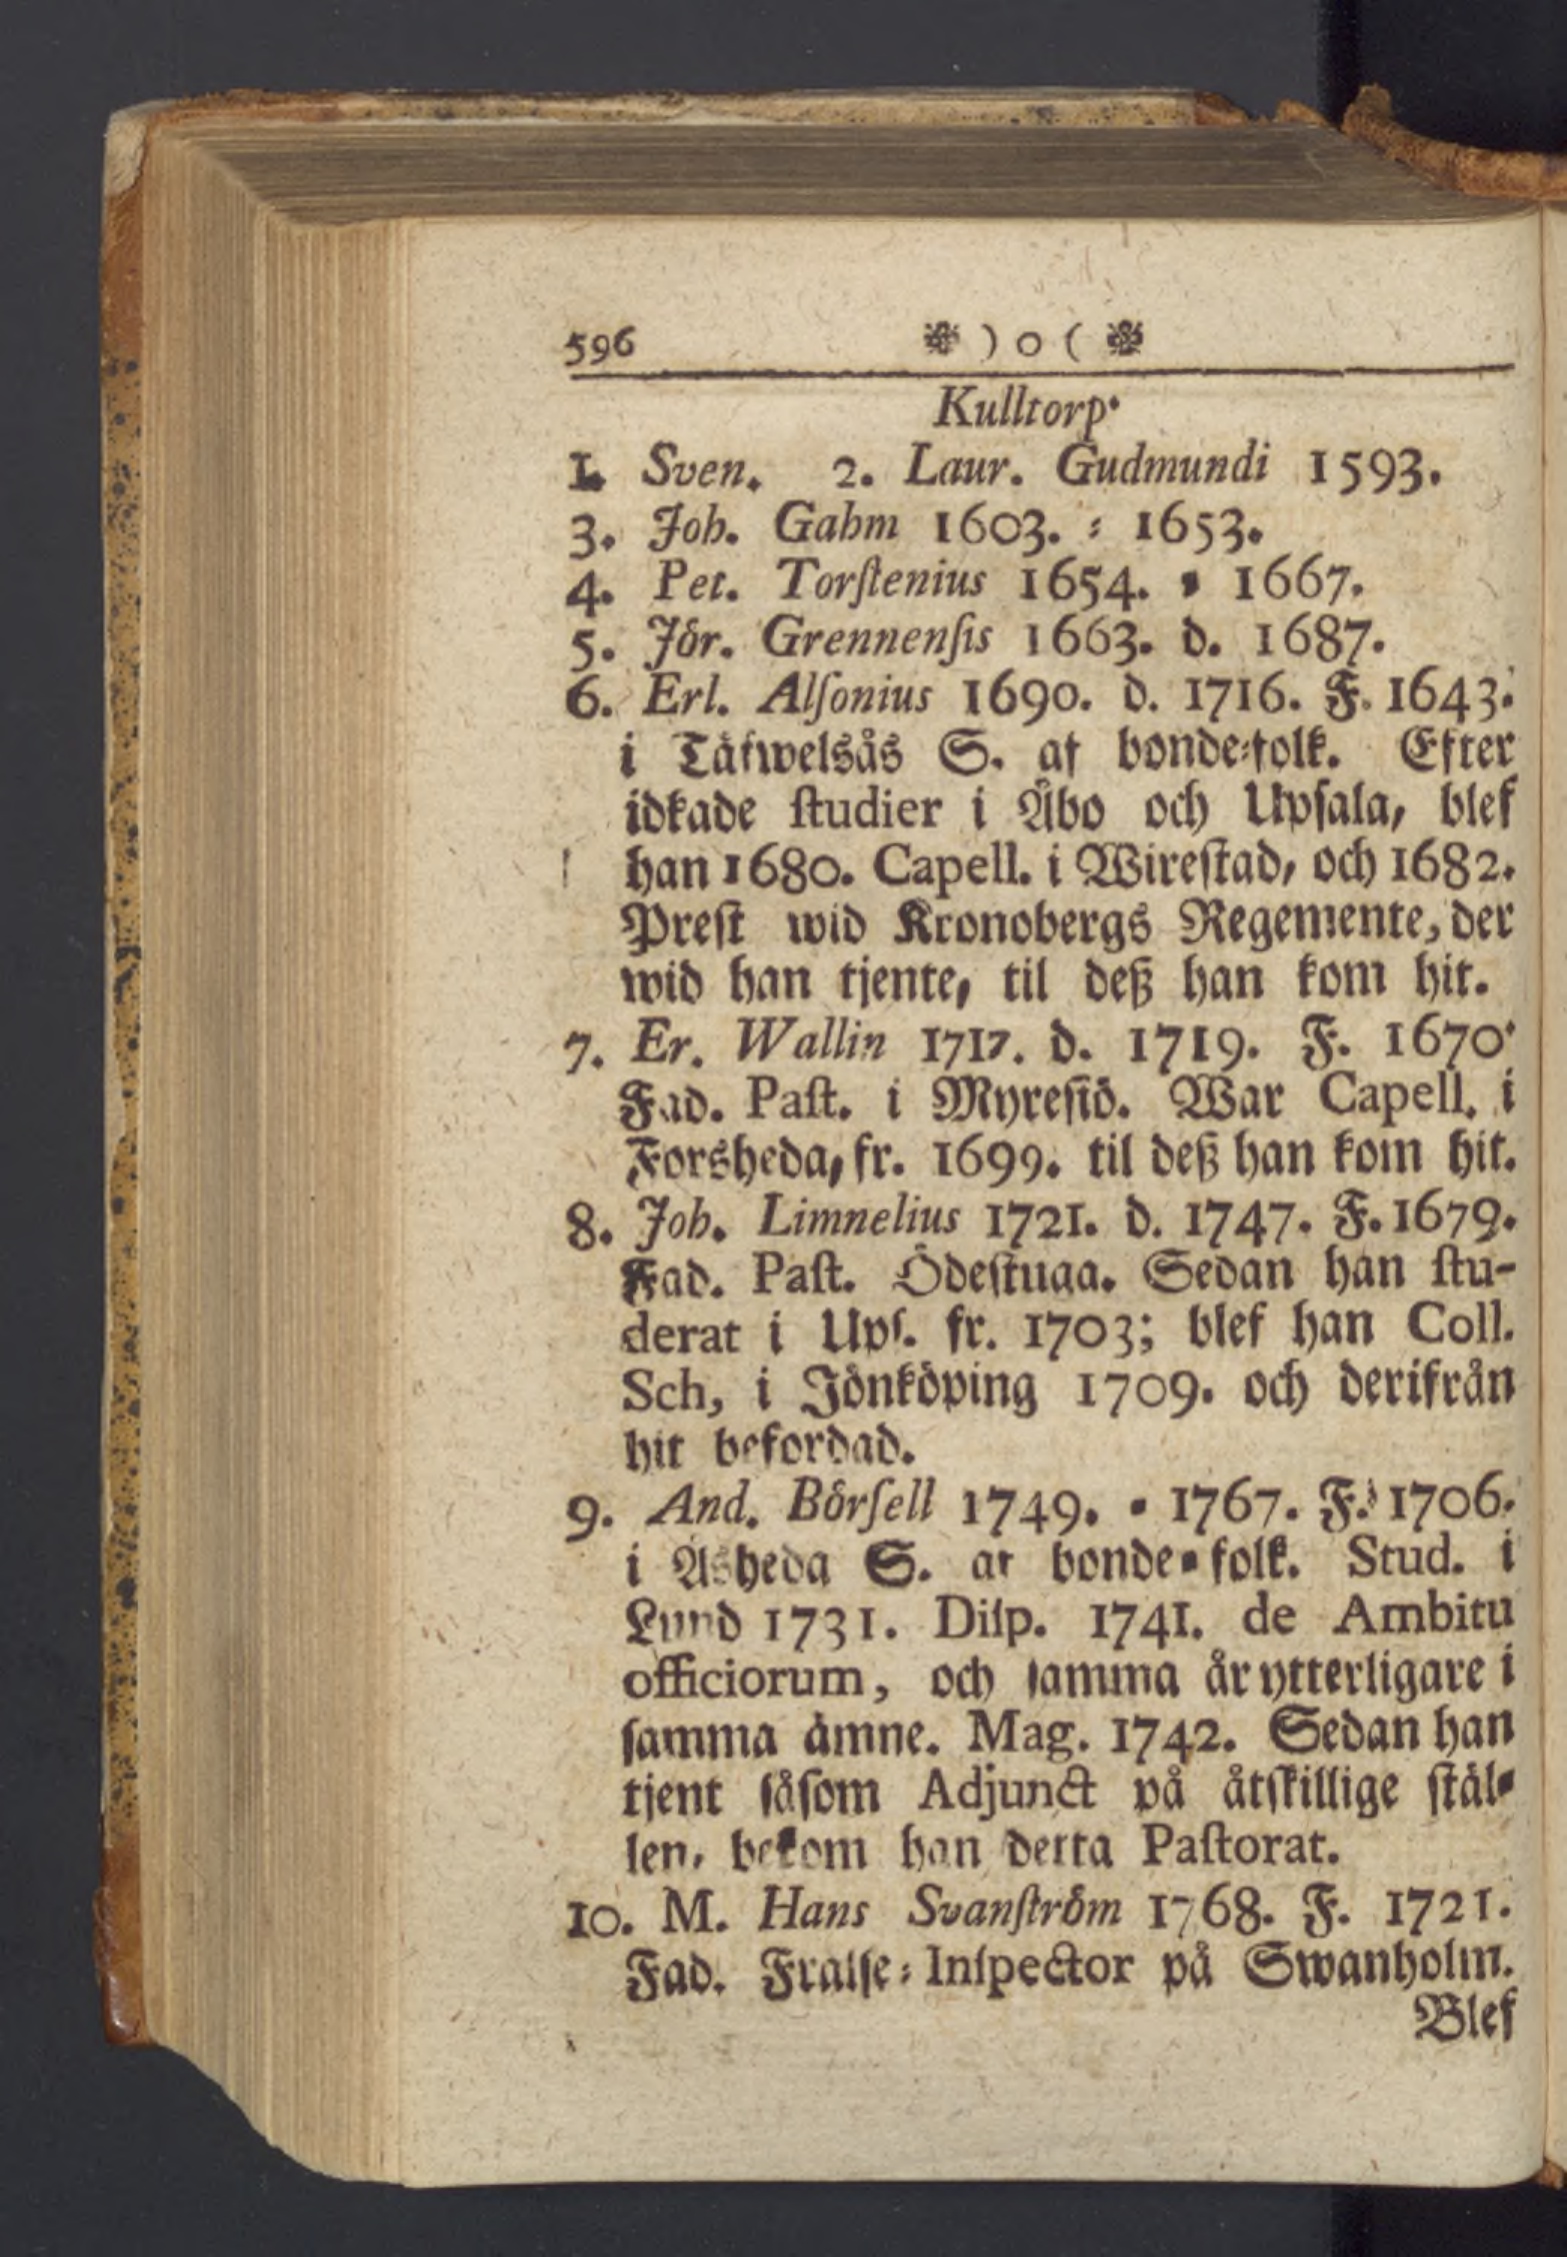 596 ❋ ) o ( ❋
Kulltorp.
1. Sven. 2. Laur. Gudmundi 1593.
3. Joh. Gahm 1603. - 1653.
4. Pet. Torſtenius 1654. - 1667.
5. Jör. Grennenſis 1663. d. 1687.
6. Erl. Alſonius 1690. d. 1716. F. 1643.
i Täfwelsås S. af bonde-folk. Efter
idkade ſtudier i Åbo och Upſala, blef
han 1680. Capell. i Wireſtad, och 1682.
Preſt wid Kronobergs Regemente, der
wid han tjente, til deß han kom hit.
7. Er. Wallin 1717. d. 1719. F. 1670.
Fad. Paſt. i Myreſiö. War Capell. i
Forsheda, fr. 1699. til deß han kom hit.
8. Joh. Limnelius 1721. d. 1747. F. 1679.
Fad. Paſt. Ödeſtuga. Sedan han ſtu-
derat i Upſ. fr. 1703; blef han Coll.
Sch, i Jönköping 1709. och derifrån
hit befordad.
9. And. Börſell 1749. - 1767. F. 1706.
i Åsheda S. af bonde-folk. Stud. i
Lund 1731. Diſp. 1741. de Ambitu
officiorum, och ſamma år ytterligare i
ſamma ämne. Mag. 1742. Sedan han
tjent ſåſom Adjunct på åtſkillige ſtäl-
len, bekom han detta Paſtorat.
10. M. Hans Svanſtröm 1768. F. 1721.
Fad. Fralſe-Inſpector på Swanholm.
Blef